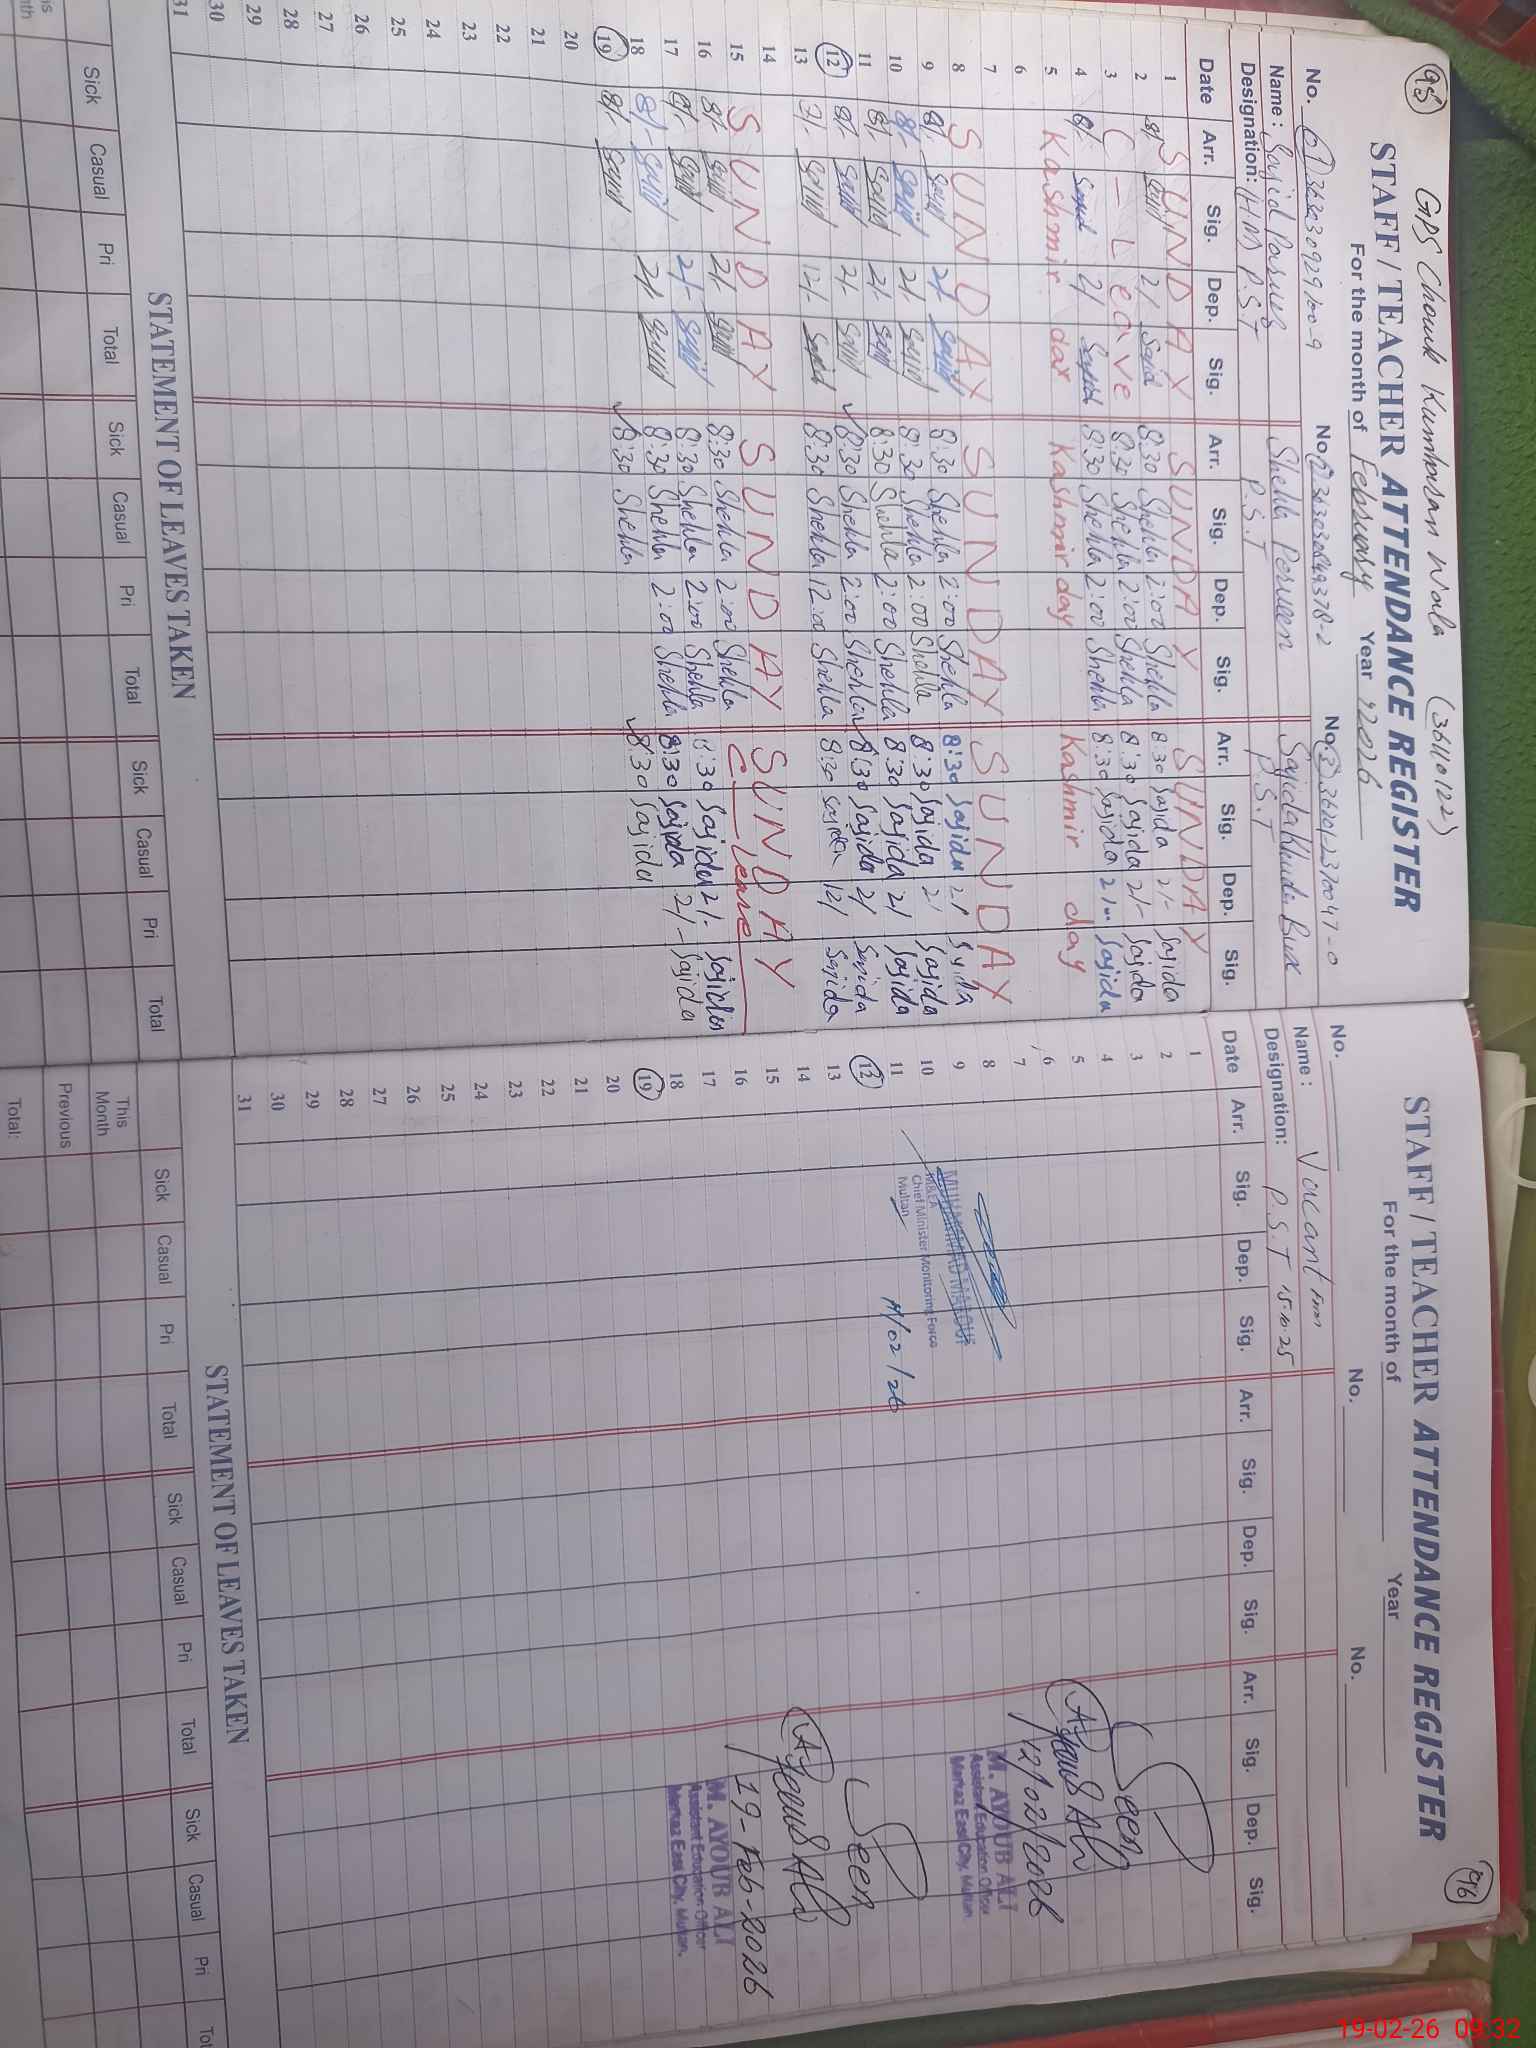 95
GPS Chowk Kumharan Wala (36110122)
STAFF / TEACHER ATTENDANCE REGISTER
For the month of February Year 2026
No. No. No.
Name: Sajid Shehla Perween
Designation: HM P.S.T P.S.T P.S.T
Date Arr. Sig. Dep. Sig. Arr. Sig. Dep. Sig. Arr. Sig. Dep. Sig.
1 SUNDAY SUNDAY SUNDAY
2 8/- Sajid 2/- Sajid 8:30 Shehla 2:00 Shehla 8:30 Sajida 2/- Sajida
3 C-Leave 8:30 Shehla 2:00 Shehla 8:30 Sajida 2/- Sajida
4 8/- Sajid 2/ Sajid 8:30 Shehla 2:00 Shehla 8:30 Sajida Sajida
5 Kashmir day Kashmir day Kashmir day
6
7
8 SUNDAY SUNDAY SUNDAY
9 8/- Sajid 2/- Sajid 8:30 Shehla 2:00 Shehla 8:30 Sajida 2/ Sajida
10 8/- Sajid 2/- Sajid 8:30 Shehla 2:00 Shehla 8:30 Sajida 2/ Sajida
11 8/- Sajid 2/- Sajid 8:30 Shehla 2:00 Shehla 8:30 Sajida 2/ Sajida
12 8/- Sajid 2/- Sajid 8:30 Shehla 2:00 Shehla 8:30 Sajida 2/ Sajida
13 Sajid 12/- Sajid 8:30 Shehla 12:00 Shehla 8:30 Sajida 12/ Sajida
14
15 SUNDAY SUNDAY SUNDAY
16 8/- Sajid 2/- Sajid 8:30 Shehla 2:00 Shehla C-Leave
17 8/- Sajid 2/- Sajid 8:30 Shehla 2:00 Shehla 8:30 Sajida 2/- Sajida
18 8/- Sajid 2/- Sajid 8:30 Shehla 2:00 Shehla 8:30 Sajida 2/- Sajida
19 8/- Sajid 8:30 Shehla 8:30 Sajida
20
21
22
23
24
25
26
27
28
29
30
31
STATEMENT OF LEAVES TAKEN
Sick Casual Pri Total Sick Casual Pri Total Sick Casual Pri Total
96
STAFF / TEACHER ATTENDANCE REGISTER
For the month of Year
No. No. No.
Name: Vacant from
Designation: P.S.T 15.10.25
Date Arr. Sig. Dep. Sig. Arr. Sig. Dep. Sig. Arr. Sig. Dep. Sig.
1
2
3
4
5
6
7
8
9
10
11
12
13
14
15
16
17
18
19
20
21
22
23
24
25
26
27
28
29
30
31
MUHAMMAD
M&EA
Chief Minister Monitoring Force
Multan
11/02/26
Seen
12/02/2026
M. AYOUB ALI
Assistant Education Officer
Markaz East City, Multan.
Seen
19-Feb-2026
M. AYOUB ALI
Assistant Education Officer
Markaz East City, Multan.
STATEMENT OF LEAVES TAKEN
Sick Casual Pri Total Sick Casual Pri Total Sick Casual Pri
This Month
Previous
Total:
19-02-26 09:32